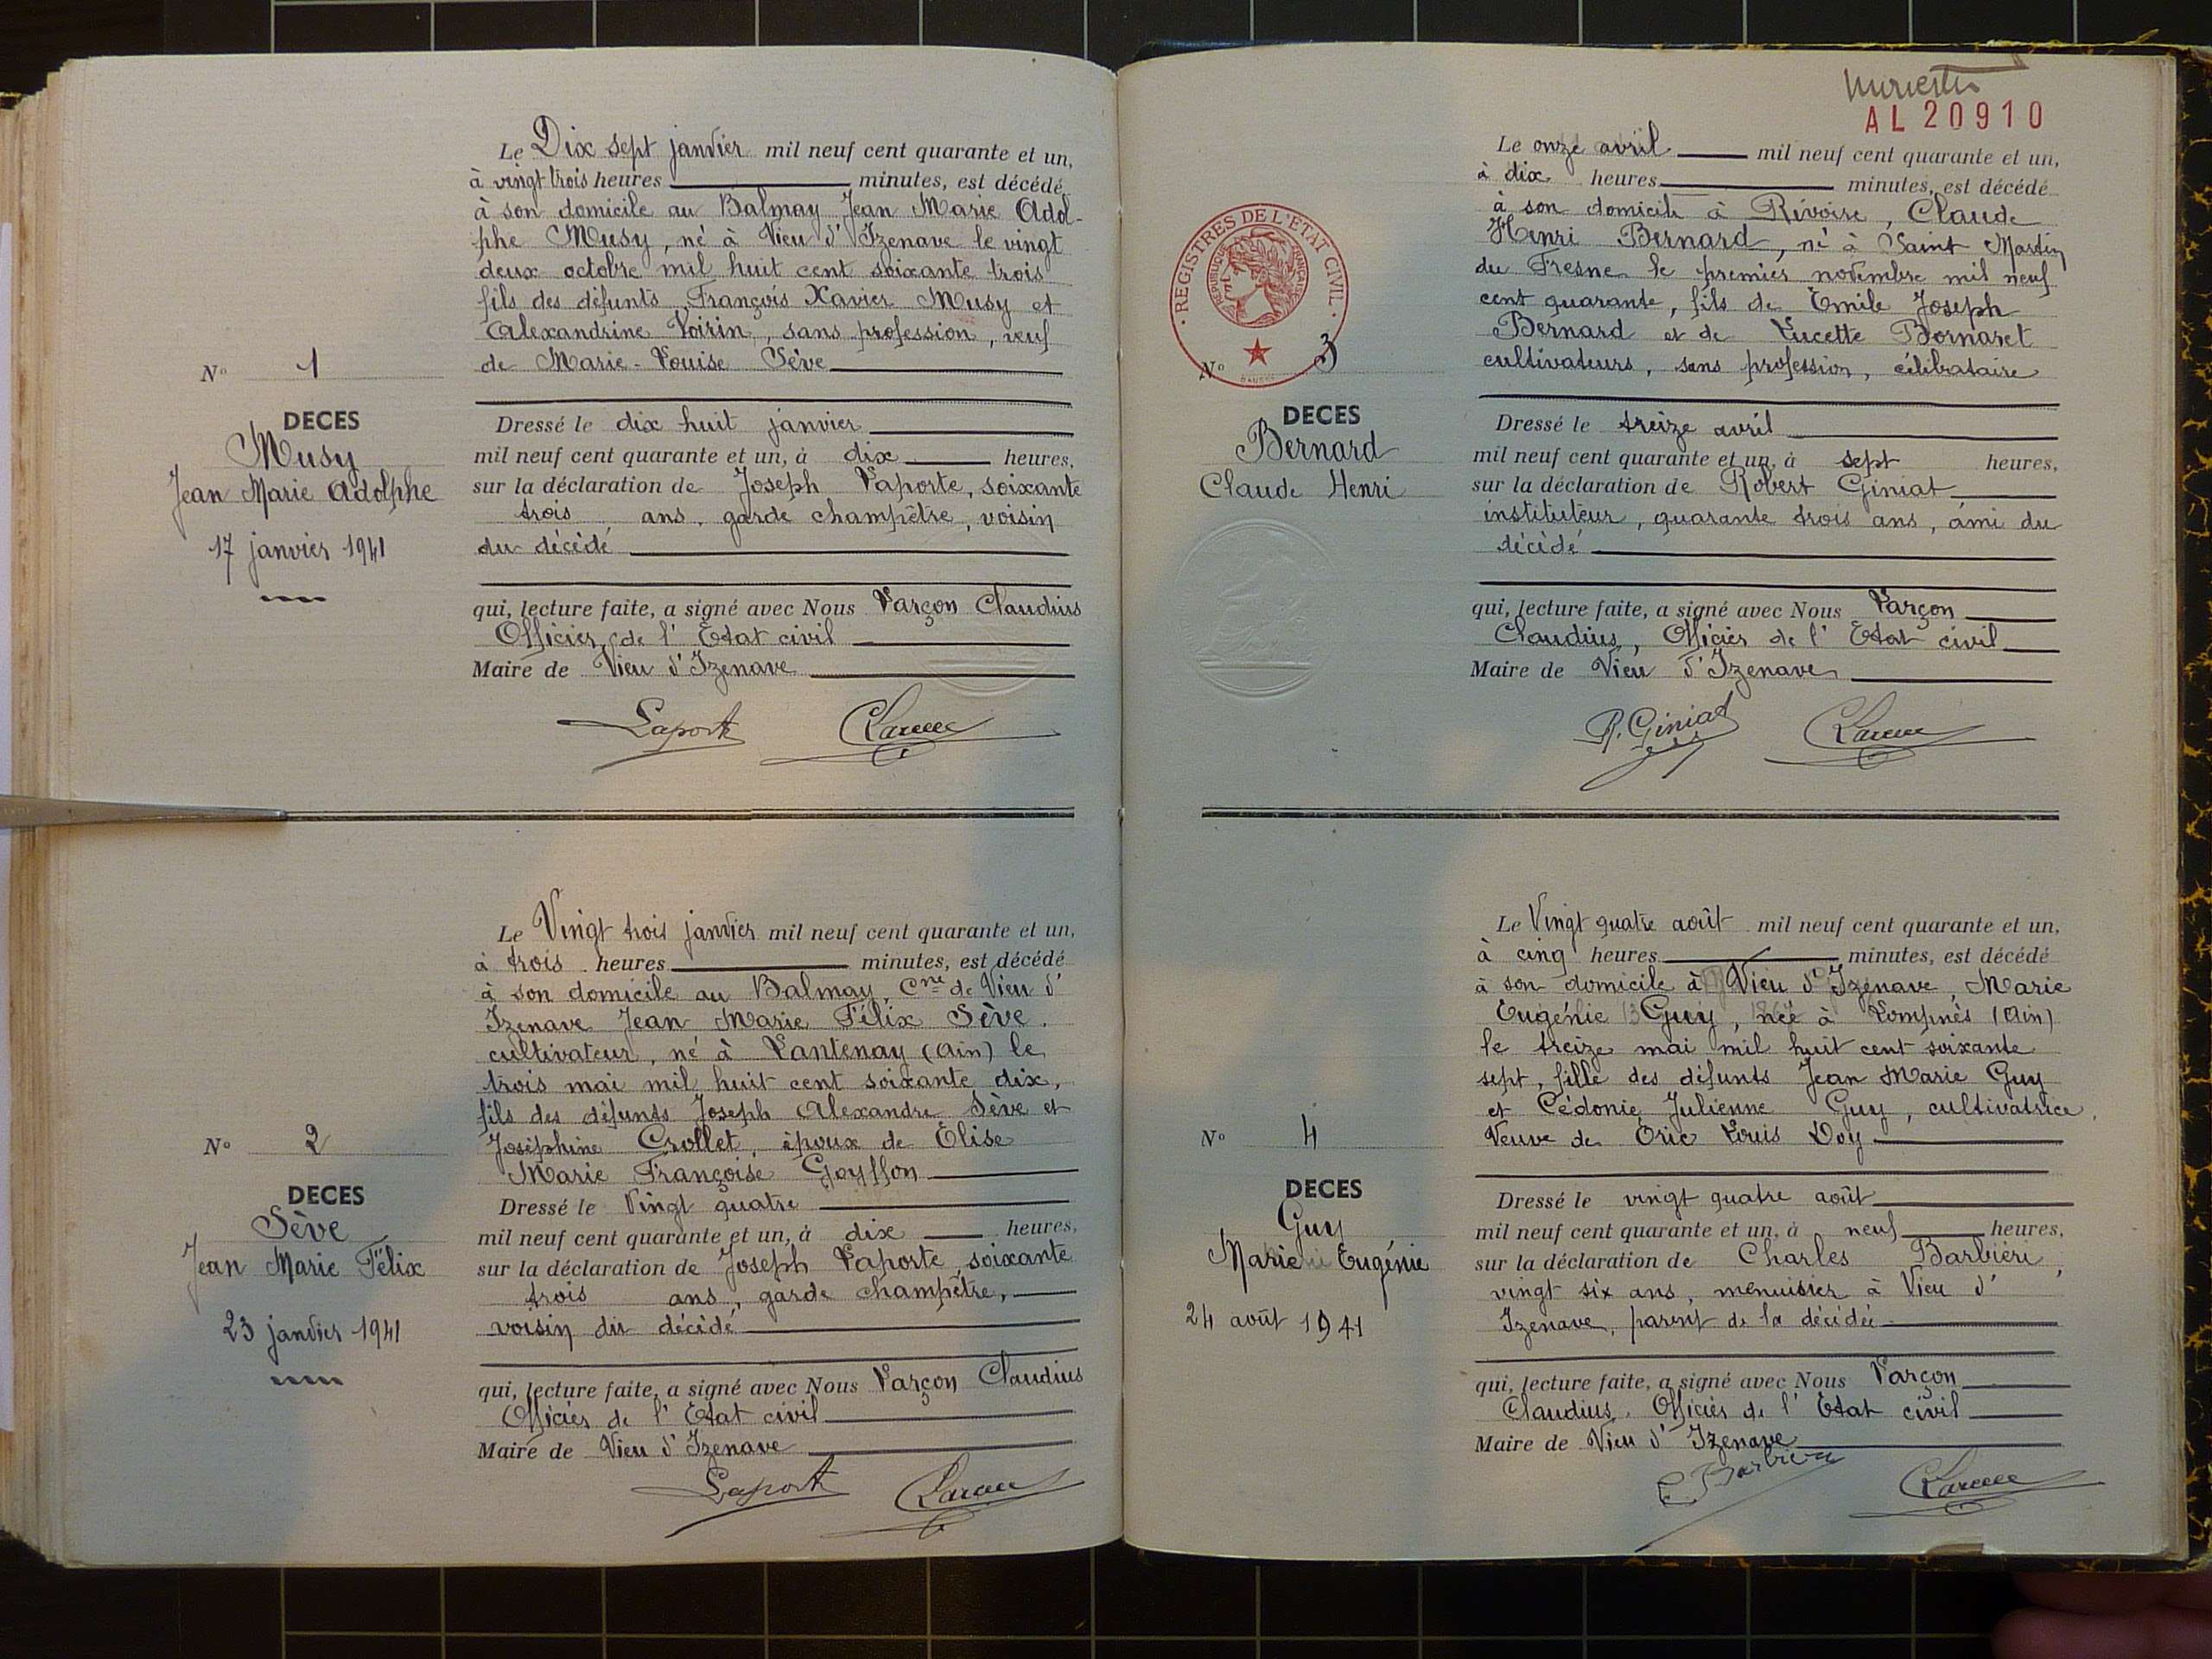 Le Dix sept janvier mil neuf cent quarante et un,
à vingt trois heures minutes, est décédé
à son domicile au Balmay Jean Marie Adol-
phe Musy, né à Vieu d'Izenave le vingt
deux octobre mil huit cent soixante trois
fils des défunts François Xavier Musy et
Alexandrine Voirin, sans profession, veuf
de Marie-Louise Sève
N° 1
DECES
Musy
Jean Marie Adolphe
17 janvier 1941
Dressé le dix huit janvier
mil neuf cent quarante et un, à dix heures,
sur la déclaration de Joseph Laporte, soixante
trois ans, garde champêtre, voisin
du décédé
qui, lecture faite, a signé avec Nous Larçon Claudius
Officier de l'Etat civil
Maire de Vieu d'Izenave
Laporte
Le Vingt trois janvier mil neuf cent quarante et un,
à trois heures minutes, est décédé
à son domicile au Balmay, Cne de Vieu d'
Izenave Jean Marie Félix Sève.
cultivateur, né à Lantenay (Ain) le
trois mai mil huit cent soixante dix,
fils des défunts Joseph Alexandre Sève et
Joséphine Crollet, époux de Élise
Marie Françoise Goyffon
N° 2
DECES
Sève
Jean Marie Félix
23 janvier 1941
Dressé le Vingt quatre
mil neuf cent quarante et un, à dix heures,
sur la déclaration de Joseph Laporte, soixante
trois ans, garde champêtre,
voisin du décédé
qui, lecture faite, a signé avec Nous Larçon Claudius
Officier de l'Etat civil
Maire de Vieu d'Izenave
Laporte
AL 20910
Le onze avril mil neuf cent quarante et un,
à dix heures minutes, est décédé
à son domicile à Rivoire, Claude
Henri Bernard, né à Saint Martin
du Fresne le premier novembre mil neuf
cent quarante, fils de Émile Joseph
Bernard et de Lucette Bornaret
cultivateurs, sans profession, célibataire
REGISTRES DE L'ETAT CIVIL
REPUBLIQUE FRANÇAISE
N° 3
DECES
Bernard
Claude Henri
Dressé le treize avril
mil neuf cent quarante et un, à sept heures,
sur la déclaration de Robert Giniat
instituteur, quarante trois ans, ami du
décédé
qui, lecture faite, a signé avec Nous Larçon
Claudius, Officier de l'Etat civil
Maire de Vieu d'Izenave
R. Giniat
Le Vingt quatre août mil neuf cent quarante et un,
à cinq heures minutes, est décédé
à son domicile à Vieu d'Izenave, Marie
Eugénie Guy, née à Lompnès (Ain)
le treize mai mil huit cent soixante
sept, fille des défunts Jean Marie Guy
et Cédonie Julienne Guy, cultivatrice,
Veuve de Oric Louis Doy
N° 4
DECES
Guy
Marie Eugénie
24 août 1941
Dressé le vingt quatre août
mil neuf cent quarante et un, à neuf heures,
sur la déclaration de Charles Barbieri,
vingt six ans, menuisier à Vieu d'
Izenave, parent de la décédée
qui, lecture faite, a signé avec Nous Larçon
Claudius, Officier de l'Etat civil
Maire de Vieu d'Izenave
C Barbieri